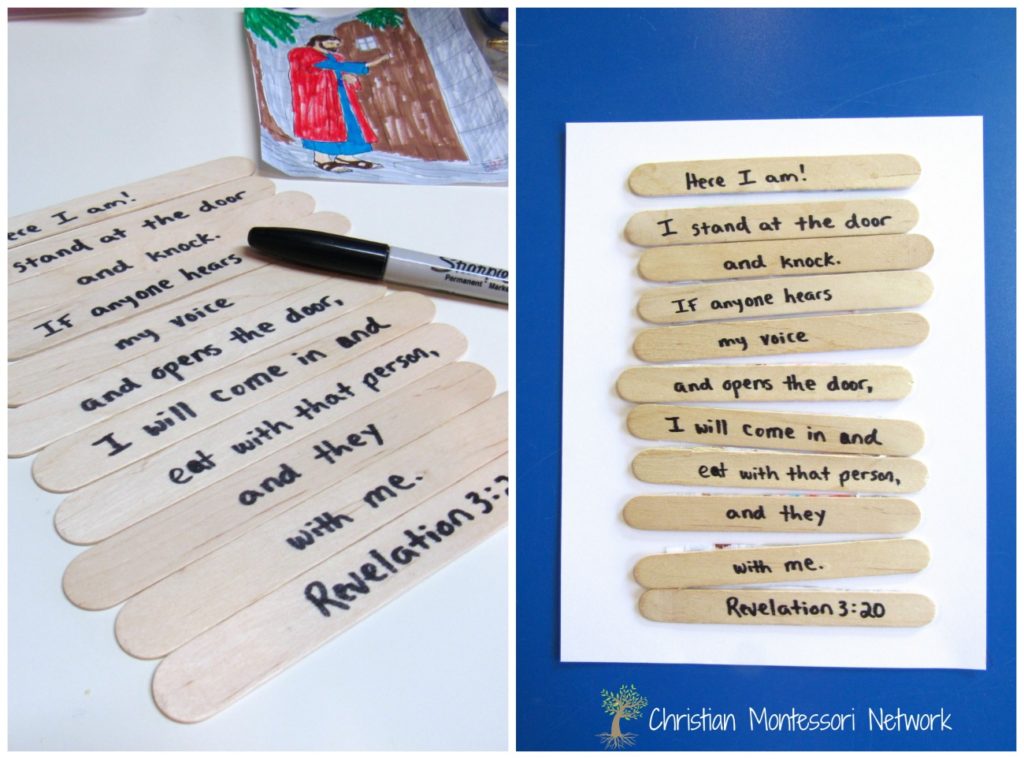 ere I am!
stand at the door
and knock.
If anyone hears
my voice
and opens the door,
I will come in and
eat with that person,
and they
with me.
Revelation 3:2
Sharpie
Permanent Marke
Here I am!
I stand at the door
and knock.
If anyone hears
my voice
and opens the door,
I will come in and
eat with that person,
and they
with me.
Revelation 3:20
Christian Montessori Network